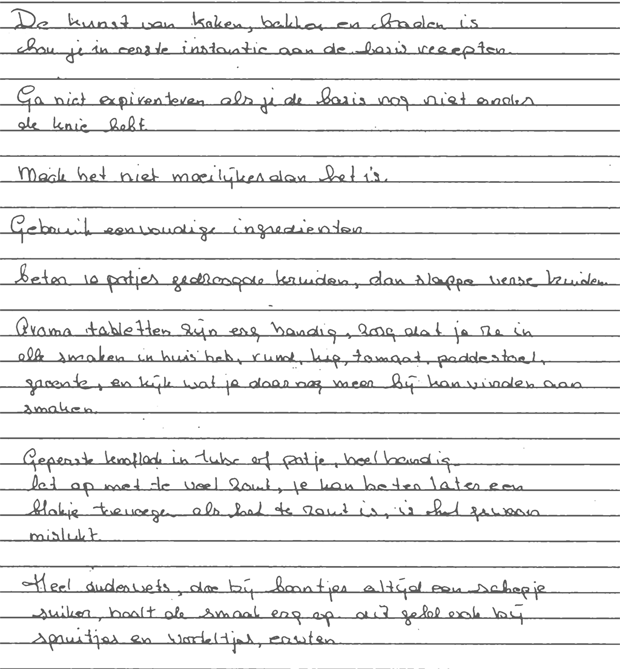 De kunst van koken, bakken en braden is
hou je in eerste instantie aan de basis recepten.
Ga niet expirenteren als je de basis nog niet onder
de knie hebt.
Maak het niet moeilijker dan het is.
Gebruik eenvoudige ingredienten
beter 10 potjes gedroogde kruiden, dan slappe verse kruiden.
Aroma tabletten zijn erg handig, zorg dat je ze in
elk smaken in huis heb, rund, kip, tomaat, paddestoel,
groente, en kijk wat je daar nog meer bij kan vinden aan
smaken.
Geperste knoflook in tube of potje, heel handig
let op met te veel zout, je kan beter later een
blokje toevoegen als het te zout is, is het gewoon
mislukt.
Heel ouderwets, doe bij boontjes altijd een schepje
suiker, haalt de smaak erg op. dit geld ook bij
spruitjes en worteltjes, erwten.